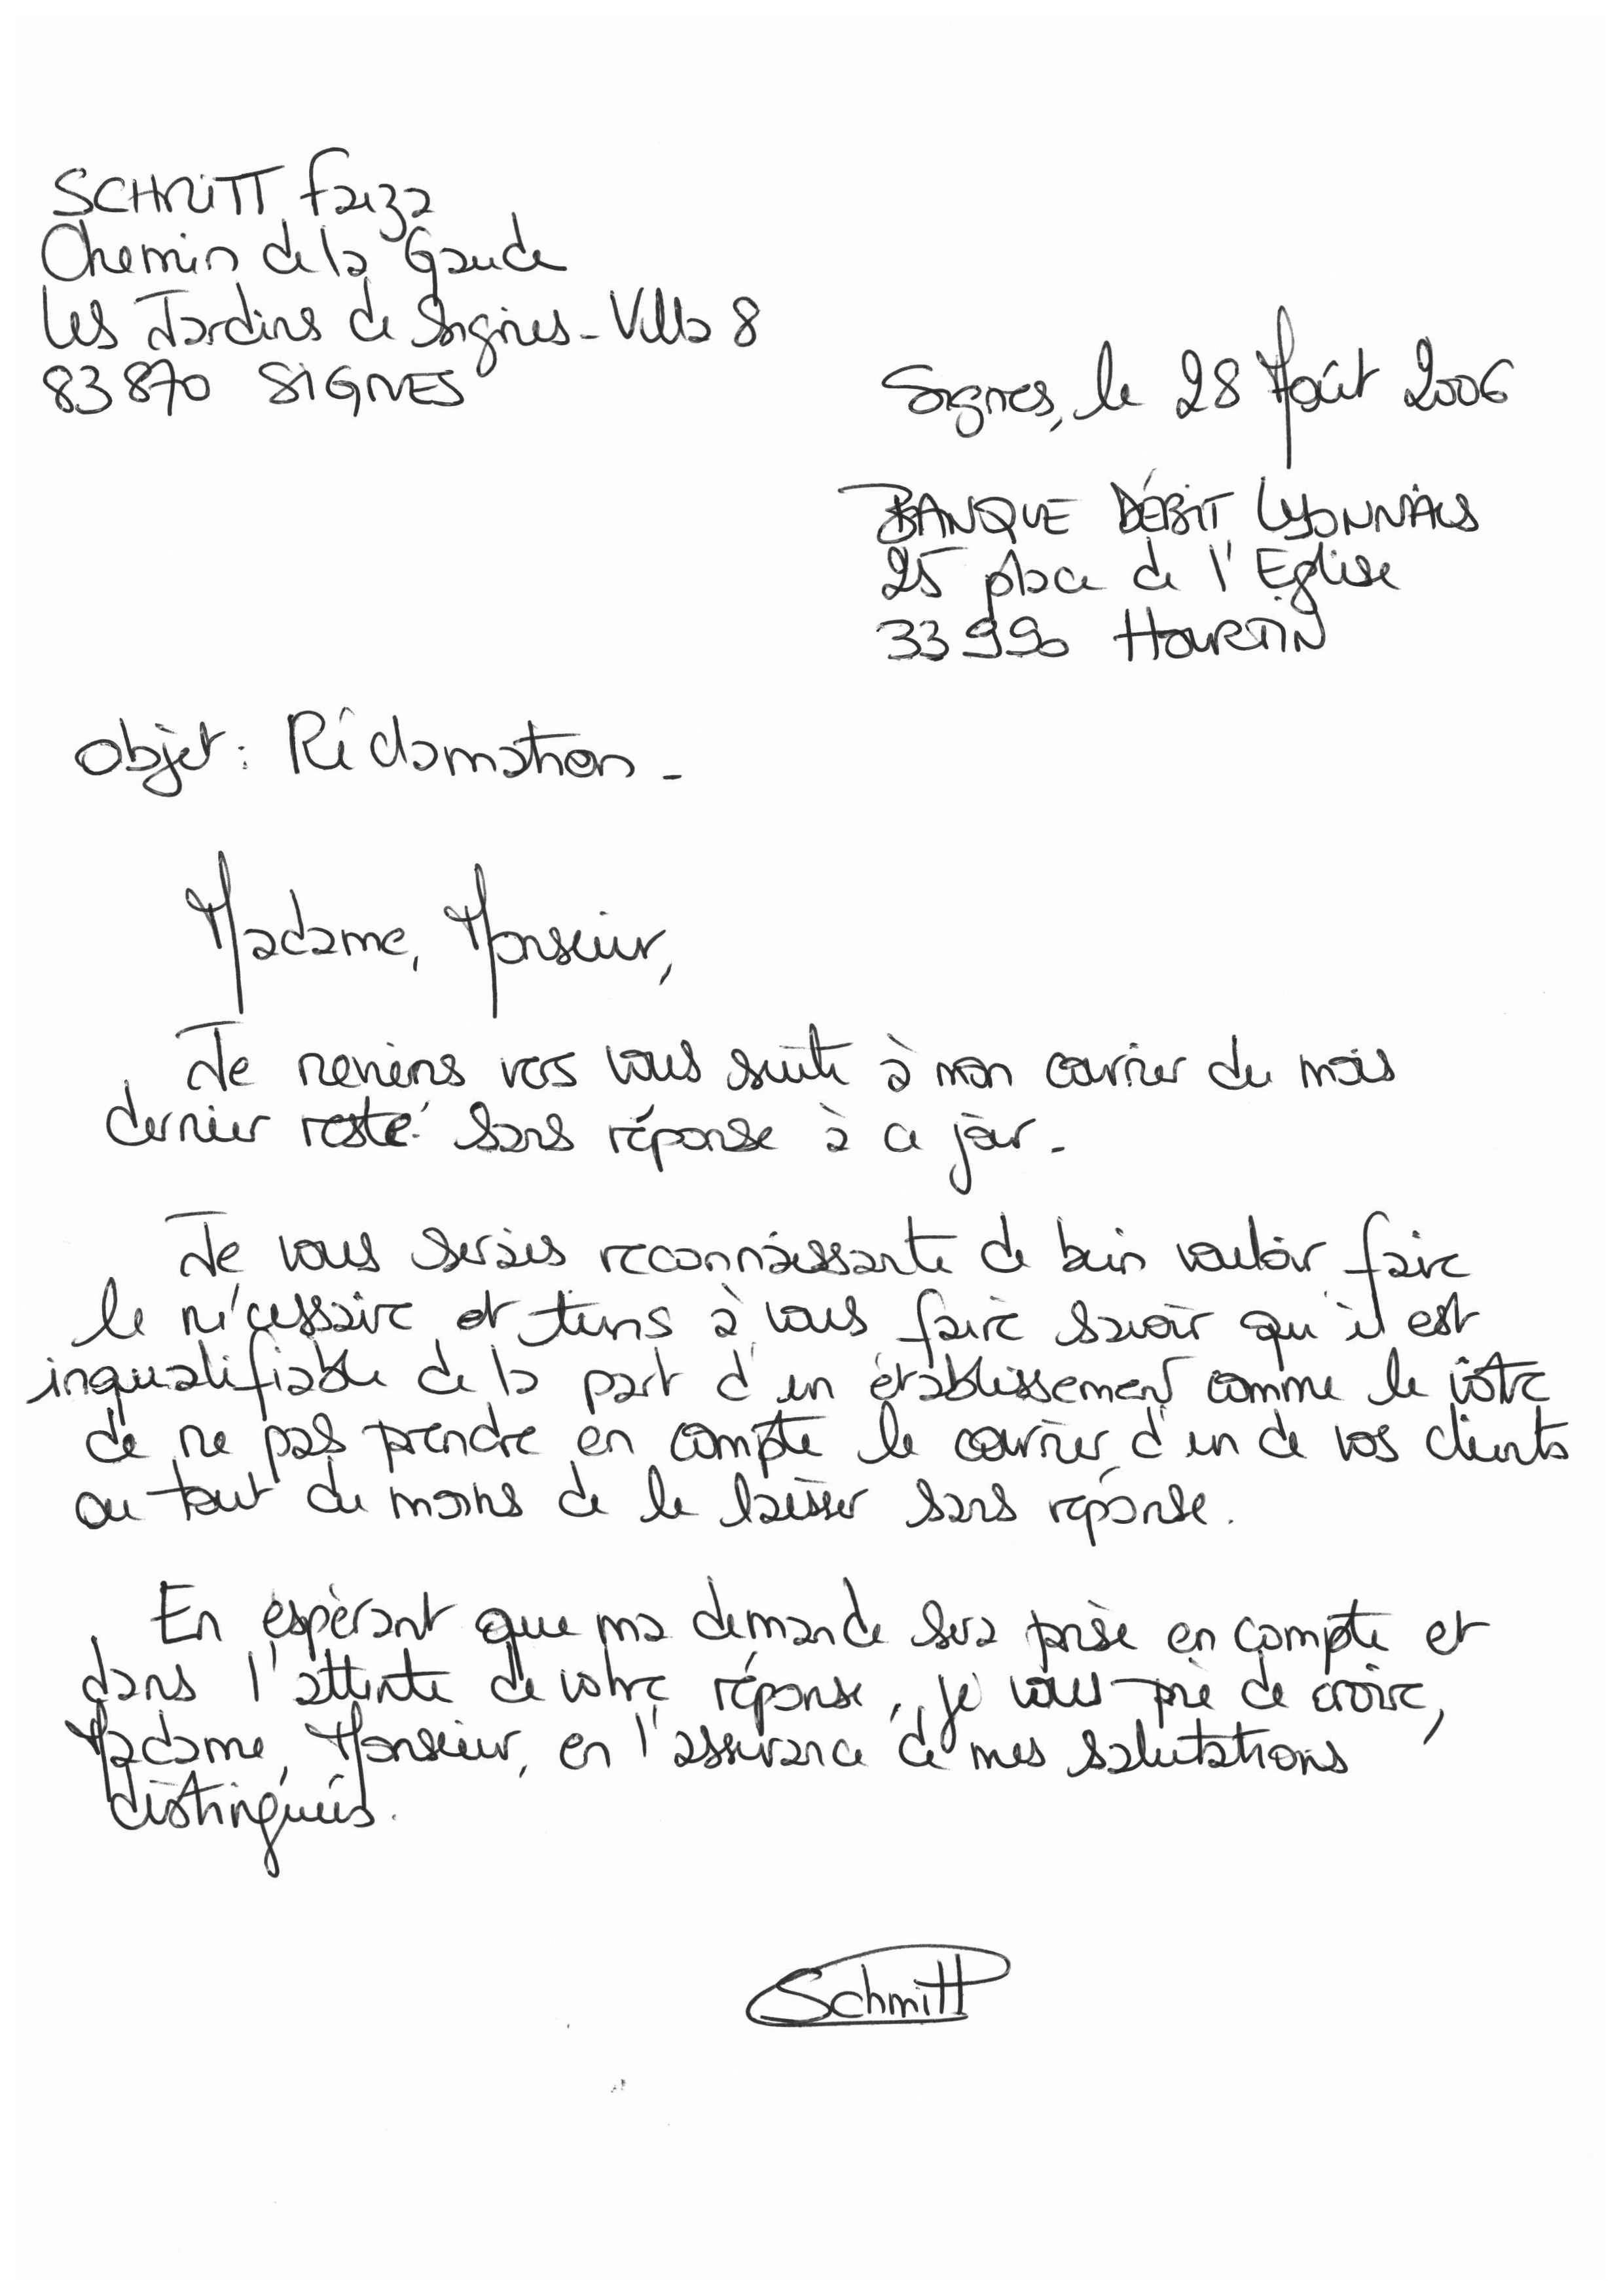 SCHMITT Faiza
Chemin de la Gaude
Les Jardins de Signes - Villa 8
83870 SIGNES
Signes, le 28 Août 2006
BANQUE DÉBIT LYONNAIS
25 place de l'Eglise
33990 HOURTIN
Objet : Réclamation -
Madame, Monsieur,
Je reviens vers vous suite à mon courrier du mois
dernier resté sans réponse à ce jour -
Je vous serais reconnaissante de bien vouloir faire
le nécessaire et tiens à vous faire savoir qu'il est
inqualifiable de la part d'un établissement comme le vôtre
de ne pas prendre en compte le courrier d'un de vos clients
ou tout du moins de le laisser sans réponse.
En espérant que ma demande sera prise en compte et
dans l'attente de votre réponse, je vous prie de croire,
Madame, Monsieur, en l'assurance de mes salutations
distinguées.
Schmitt